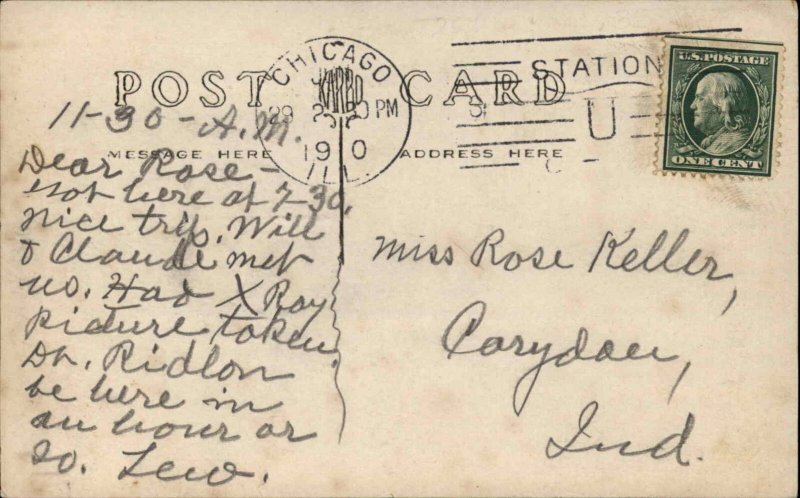 POST CARD
CHICAGO
29
2
PM
1910
ILL
STATION
U
U.S. POSTAGE
ONE CENT
MESSAGE HERE
ADDRESS HERE
11-30-A.M.
Dear Rose-
Got here at 7-30.
nice trip. Will
& Claude met
us. Had X Ray
picture taken.
Dr. Ridlon
be here in
an hour or
so. Lew.
Miss Rose Keller,
Corydon,
Ind.